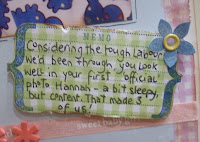 MEMO
Considering the tough labour
we'd been through, you look
well in your first official
photo Hannah - a bit sleepy,
but content. That made 3
of us!
sweet baby